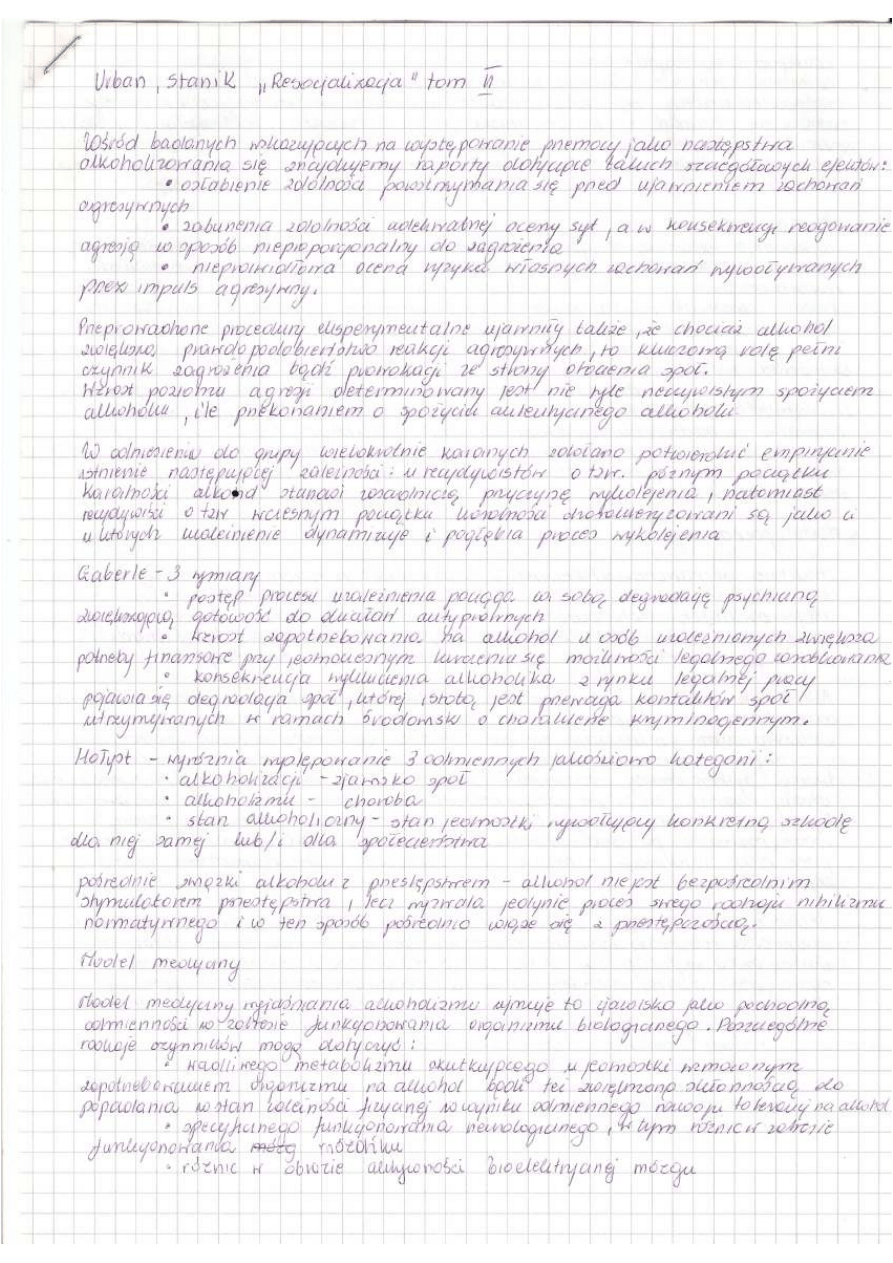 Urban, Stanik „Resocjalizacja" tom II
Wśród badanych wskazujących na występowanie przemocy jako następstwa
alkoholizowania się znajdujemy raporty dotyczące takich szczegółowych efektów:
• osłabienie zdolności powstrzymania się przed ujawnieniem zachowań
agresywnych
• zaburzenia zdolności adekwatnej oceny syt, a w konsekwencji reagowanie
agresją w sposób nieproporcjonalny do zagrożenia
• nieprawidłowa ocena ryzyka własnych zachowań wywoływanych
przez impuls agresywny.
Przeprowadzone procedury eksperymentalne ujawniły także, że chociaż alkohol
zwiększa prawdopodobieństwo reakcji agresywnych, to kluczową rolę pełni
czynnik zagrożenia bądź prowokacji ze strony otoczenia społ.
Wzrost poziomu agresji determinowany jest nie tyle rzeczywistym spożyciem
alkoholu, ile przekonaniem o spożyciu autentycznego alkoholu.
W odniesieniu do grupy wielokrotnie karanych zdołano potwierdzić empirycznie
istnienie następującej zależności: u recydywistów o tzw. późnym początku
karalności alkohol stanowi zasadniczą przyczynę wykolejenia, natomiast
recydywiści o tzw wczesnym początku karalności charakteryzowani są jako ci
u których uzależnienie dynamizuje i pogłębia proces wykolejenia
Gaberle - 3 wymiary
• postęp procesu uzależnienia pociąga za sobą degradację psychiczną
zwiększającą gotowość do działań antyprawnych
• wzrost zapotrzebowania na alkohol u osób uzależnionych zwiększa
potrzeby finansowe przy jednoczesnym kurczeniu się możliwości legalnego zarobkowania
• konsekwencja wykluczenia alkoholika z rynku legalnej pracy
pojawia się degradacja społ, której istotą jest przewaga kontaktów społ
utrzymywanych w ramach środowisk o charakterze kryminogennym.
Hołyst - wyróżnia występowanie 3 odmiennych jakościowo kategorii:
• alkoholizacji - zjawisko społ
• alkoholizmu - choroba
• stan alkoholiczny - stan jednostki wywołujący konkretną szkodę
dla niej samej lub/i dla społeczeństwa
pośrednie związki alkoholu z przestępstwem - alkohol nie jest bezpośrednim
stymulatorem przestępstwa, lecz wyzwala jedynie proces swego rodzaju nihilizmu
normatywnego i w ten sposób pośrednio wiąże się z przestępczością.
Model medyczny
Model medyczny wyjaśniania alkoholizmu ujmuje to zjawisko jako pochodną
odmienności w zakresie funkcjonowania organizmu biologicznego. Poszczególne
rodzaje czynników mogą dotyczyć:
• wadliwego metabolizmu skutkującego u jednostki wzmożonym
zapotrzebowaniem organizmu na alkohol bądź też zwiększoną skłonnością do
popadania w stan zależności fizycznej w wyniku odmiennego rozwoju tolerancji na alkohol
• specyficznego funkcjonowania neurologicznego, w tym różnic w zakresie
funkcjonowania móżdżku
• różnic w obrazie aktywności bioelektrycznej mózgu